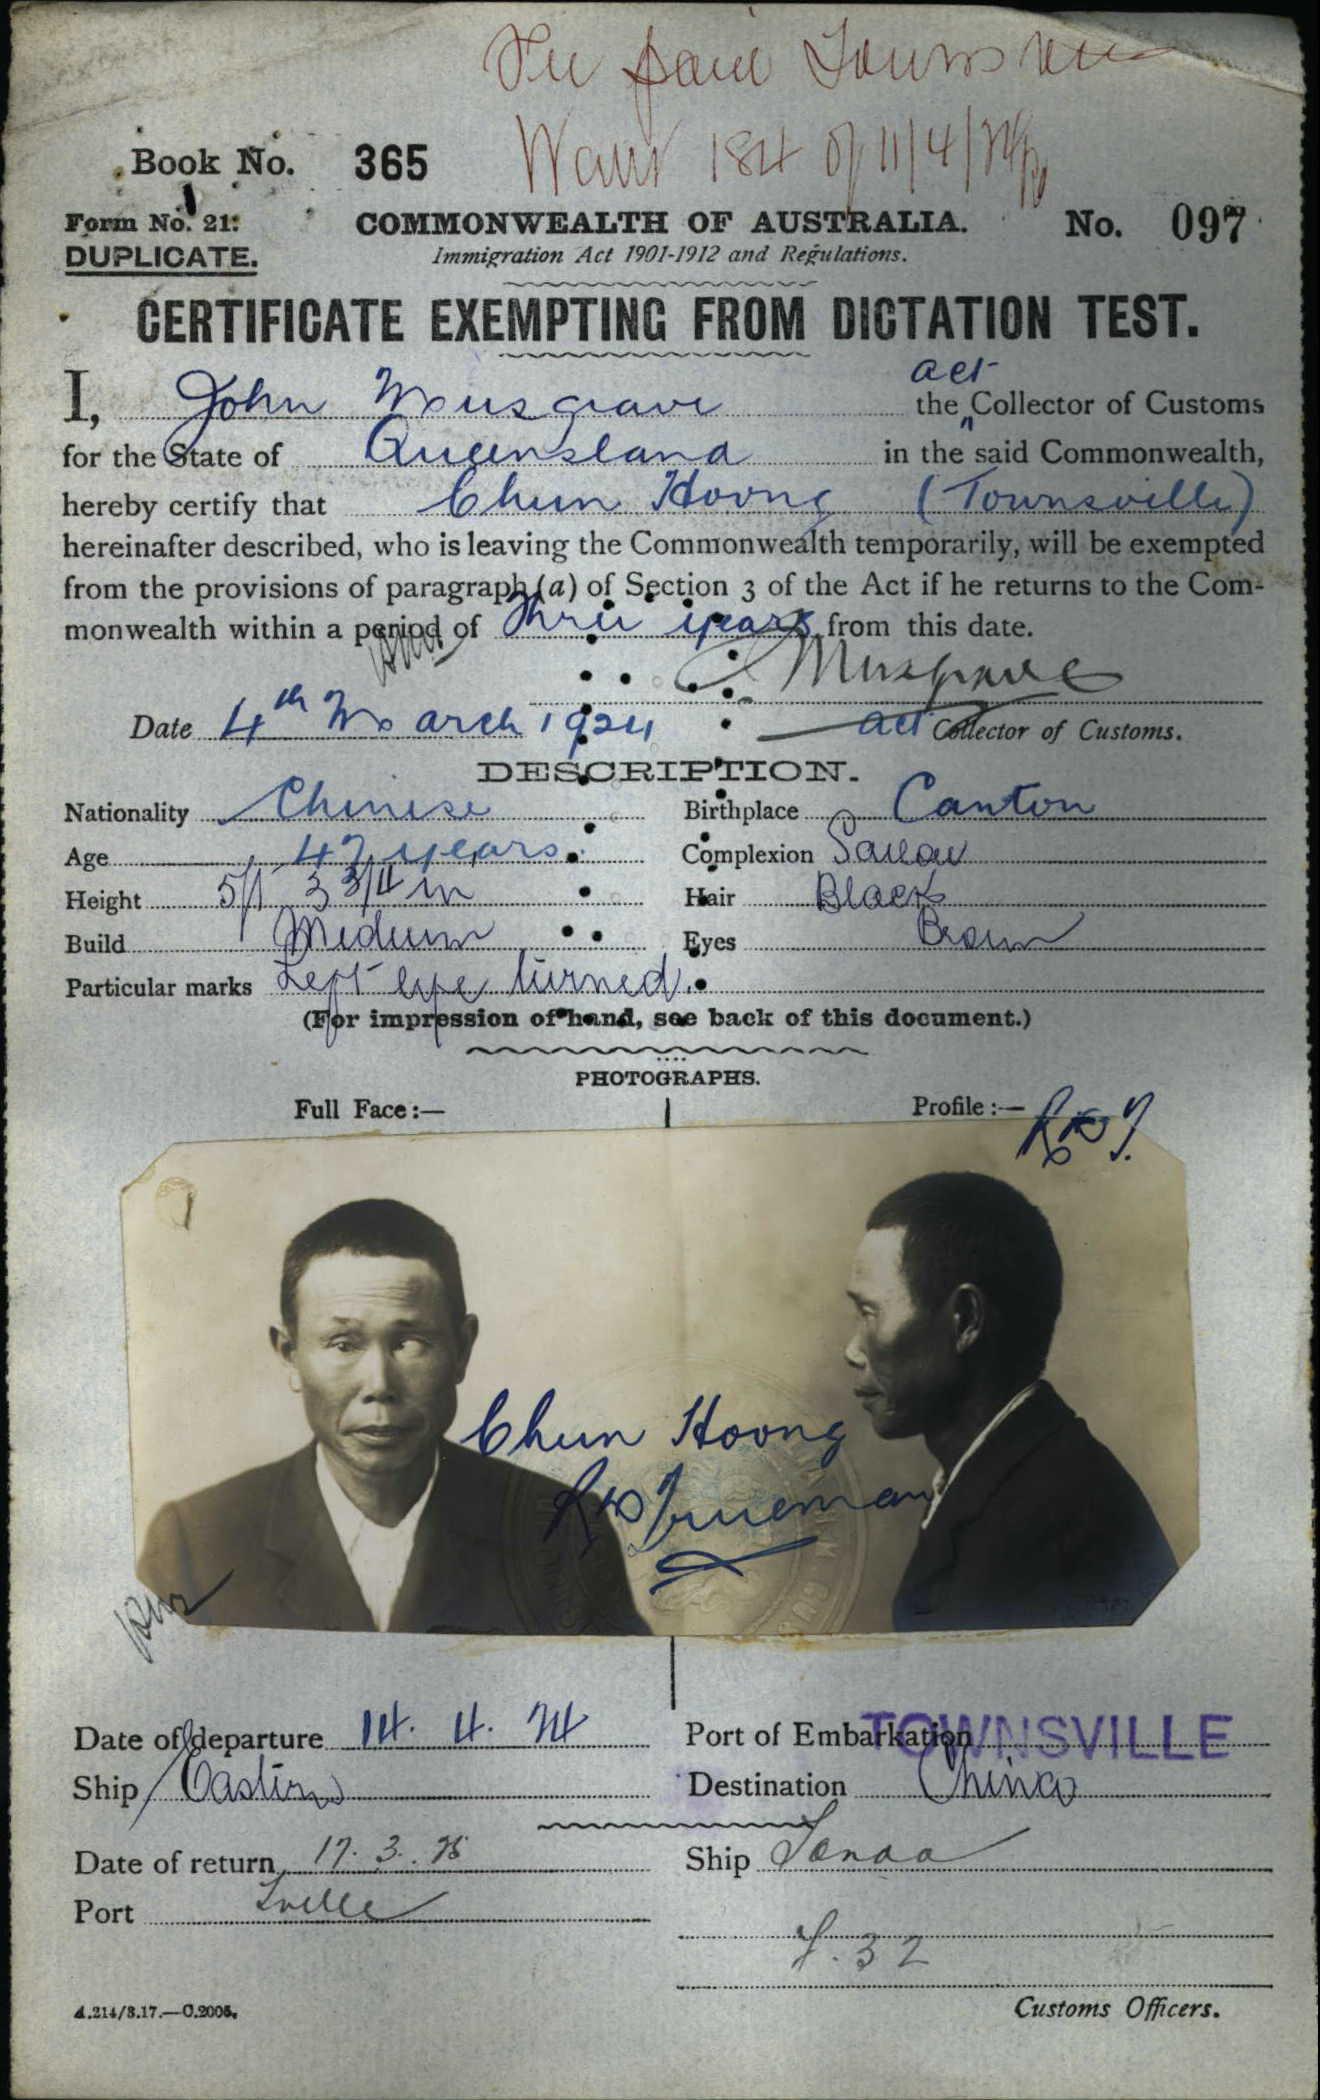 Fee paid Townsville
Warr 184 of 11/4/24
Book No. 365
Form No. 21.
COMMONWEALTH OF AUSTRALIA.
No. 097
DUPLICATE.
Immigration Act 1901-1912 and Regulations.
CERTIFICATE EXEMPTING FROM DICTATION TEST.
act
I, John Musgrave the Collector of Customs
for the State of Queensland in the said Commonwealth,
hereby certify that Chun Hoong (Townsville)
hereinafter described, who is leaving the Commonwealth temporarily, will be exempted
from the provisions of paragraph (a) of Section 3 of the Act if he returns to the Com-
monwealth within a period of Three years from this date.
Musgrave
Date 4th March 1924 act Collector of Customs.
DESCRIPTION.
Nationality Chinese Birthplace Canton
Age 47 years Complexion Sallow
Height 5ft 3 3/4 in Hair Black
Build Medium Eyes Brown
Particular marks Left eye turned.
(For impression of hand, see back of this document.)
PHOTOGRAPHS.
Full Face:— Profile:—
Chun Hoong
Trueman
Date of departure 14. 4. 24 Port of Embarkation TOWNSVILLE
Ship Eastern Destination China
Date of return 17. 3. 25 Ship Tanda
Port Tville
32
A.214/3.17.—C.2005. Customs Officers.